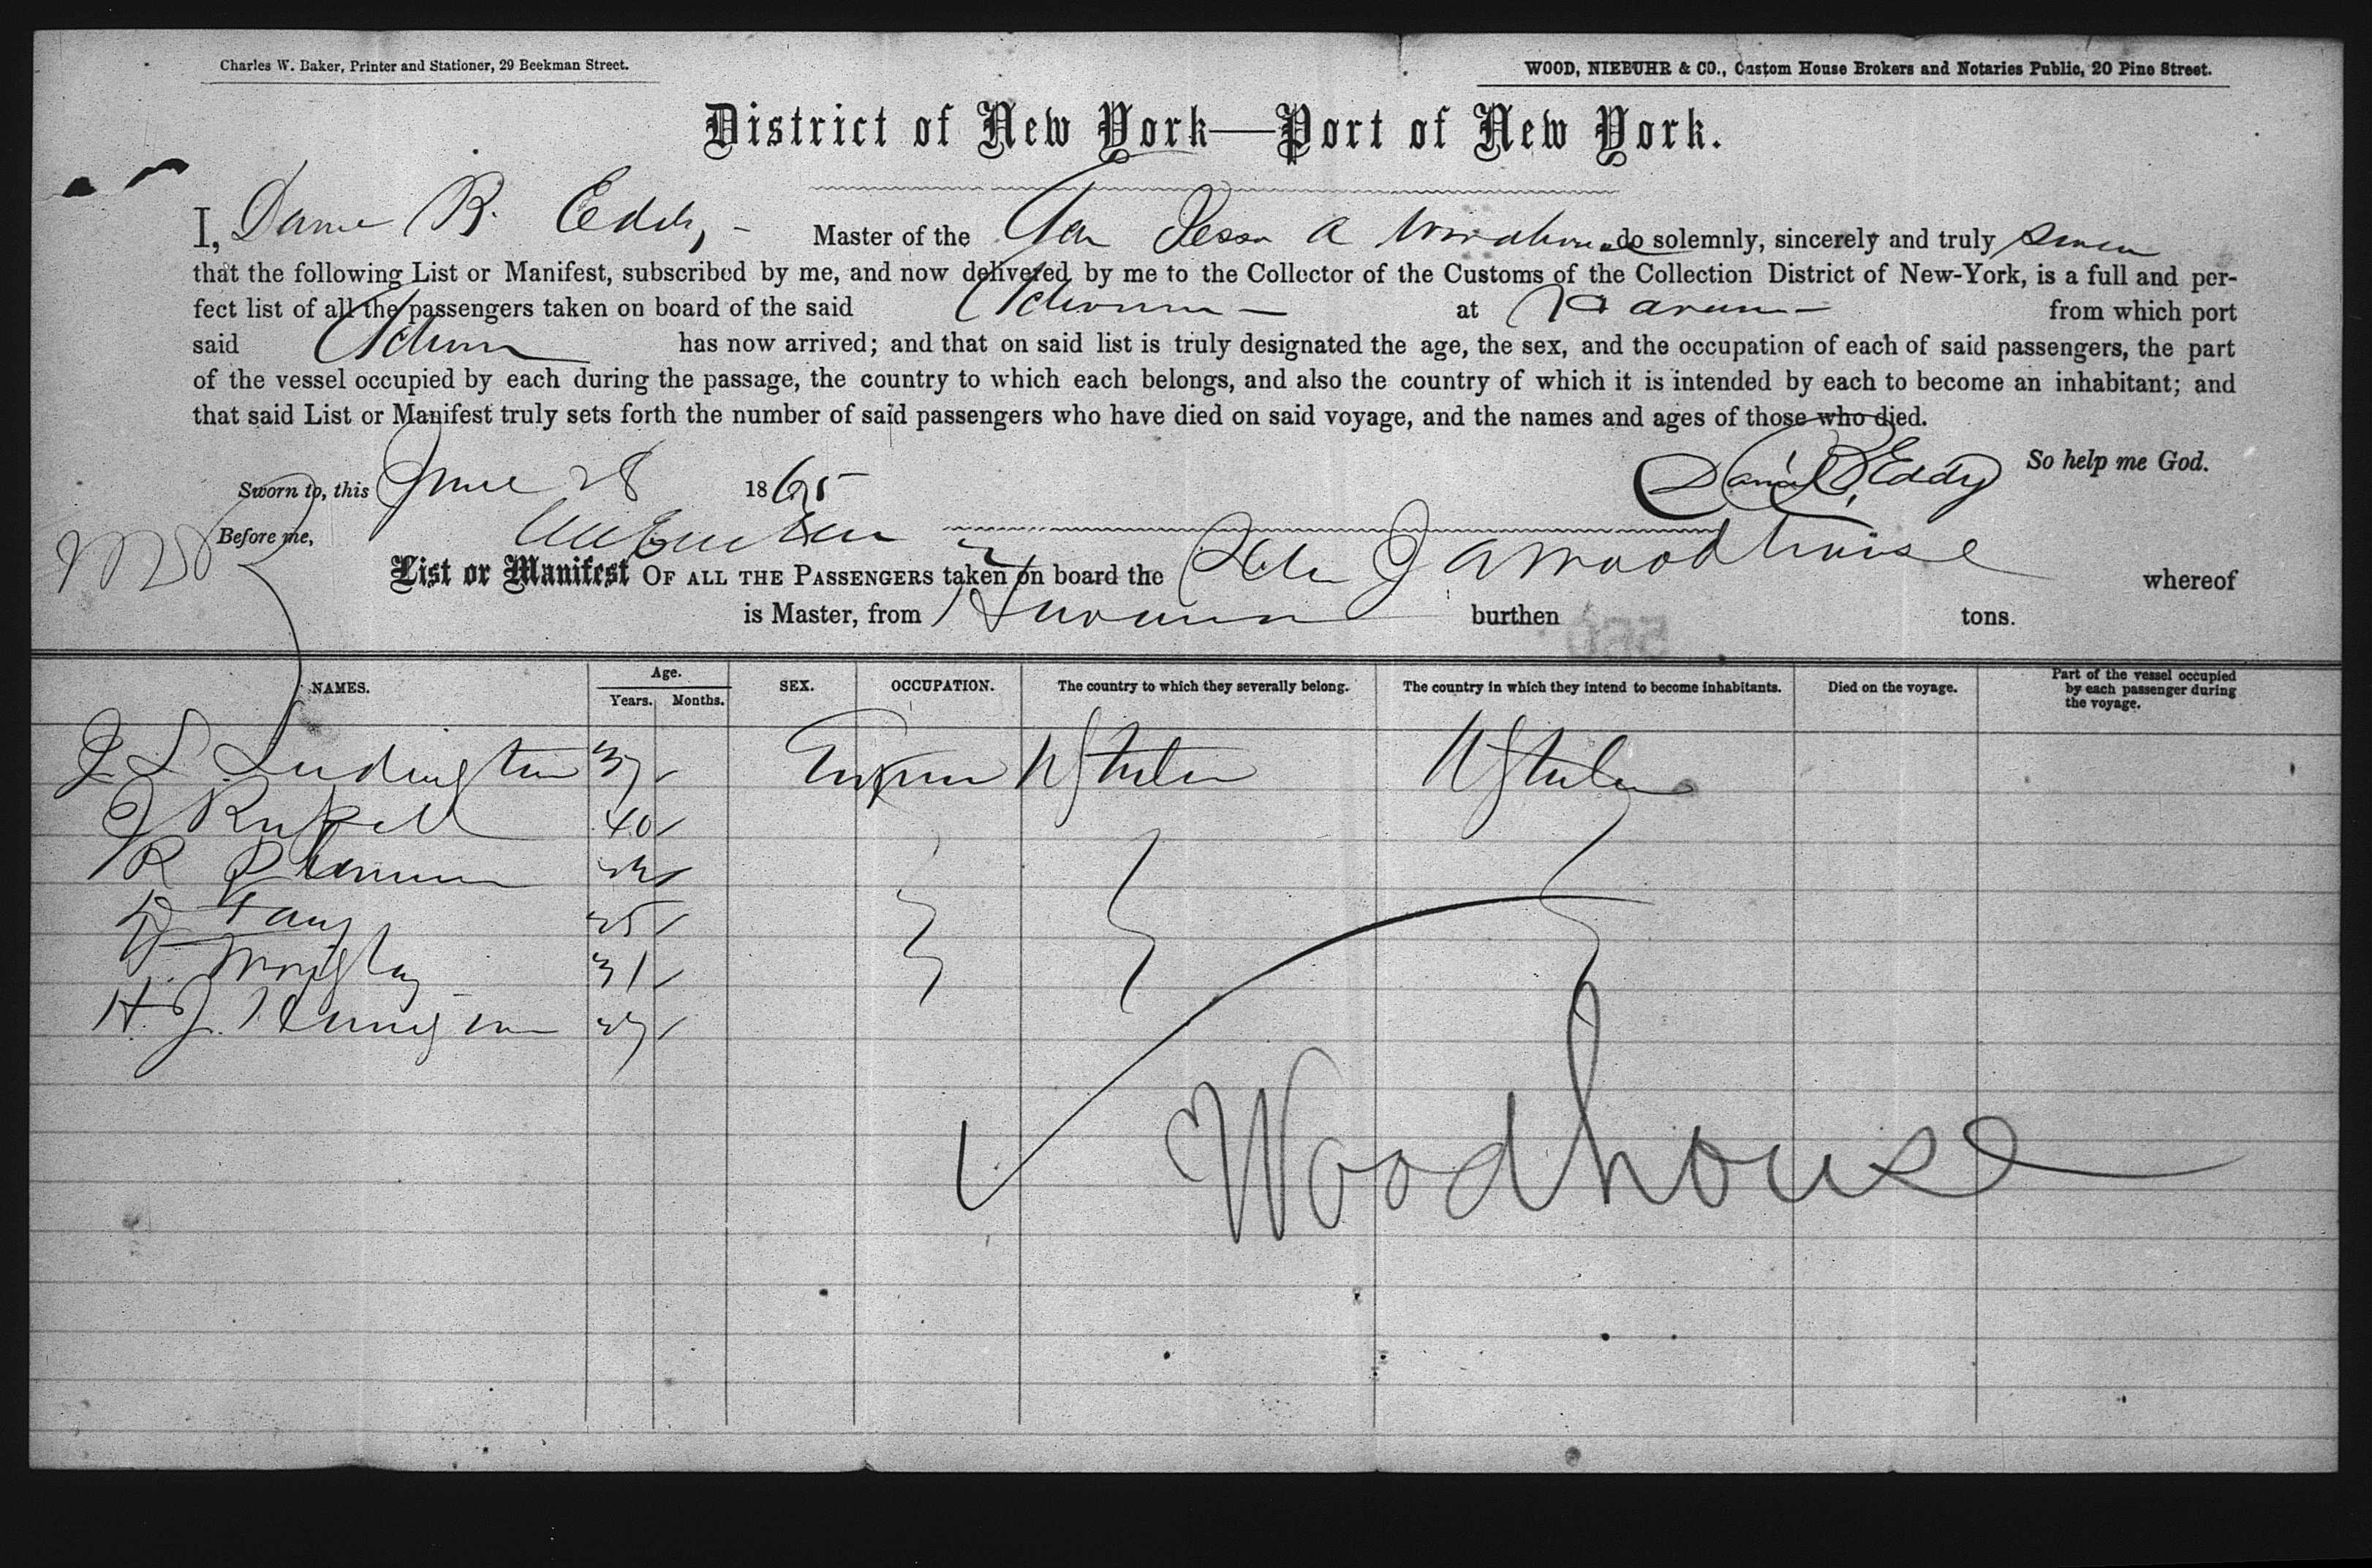 Charles W. Baker, Printer and Stationer, 29 Beekman Street.
WOOD, NIEBUHR & CO., Custom House Brokers and Notaries Public, 20 Pine Street.
District of New York—Port of New York.
I, R. Eddy, Master of the A do solemnly, sincerely and truly
that the following List or Manifest, subscribed by me, and now delivered by me to the Collector of the Customs of the Collection District of New-York, is a full and per-
fect list of all the passengers taken on board of the said at from which port
said has now arrived; and that on said list is truly designated the age, the sex, and the occupation of each of said passengers, the part
of the vessel occupied by each during the passage, the country to which each belongs, and also the country of which it is intended by each to become an inhabitant; and
that said List or Manifest truly sets forth the number of said passengers who have died on said voyage, and the names and ages of those who died.
So help me God.
Sworn to, this June 28 1865 R. Eddy
Before me,
List or Manifest OF ALL THE PASSENGERS taken on board the J A Woodhouse whereof
is Master, from burthen tons.
NAMES. Age. Years. Months. SEX. OCCUPATION. The country to which they severally belong. The country in which they intend to become inhabitants. Died on the voyage. Part of the vessel occupied by each passenger during the voyage.
J. L. Ludington 37
40
R
25
31
H. J.
Woodhouse